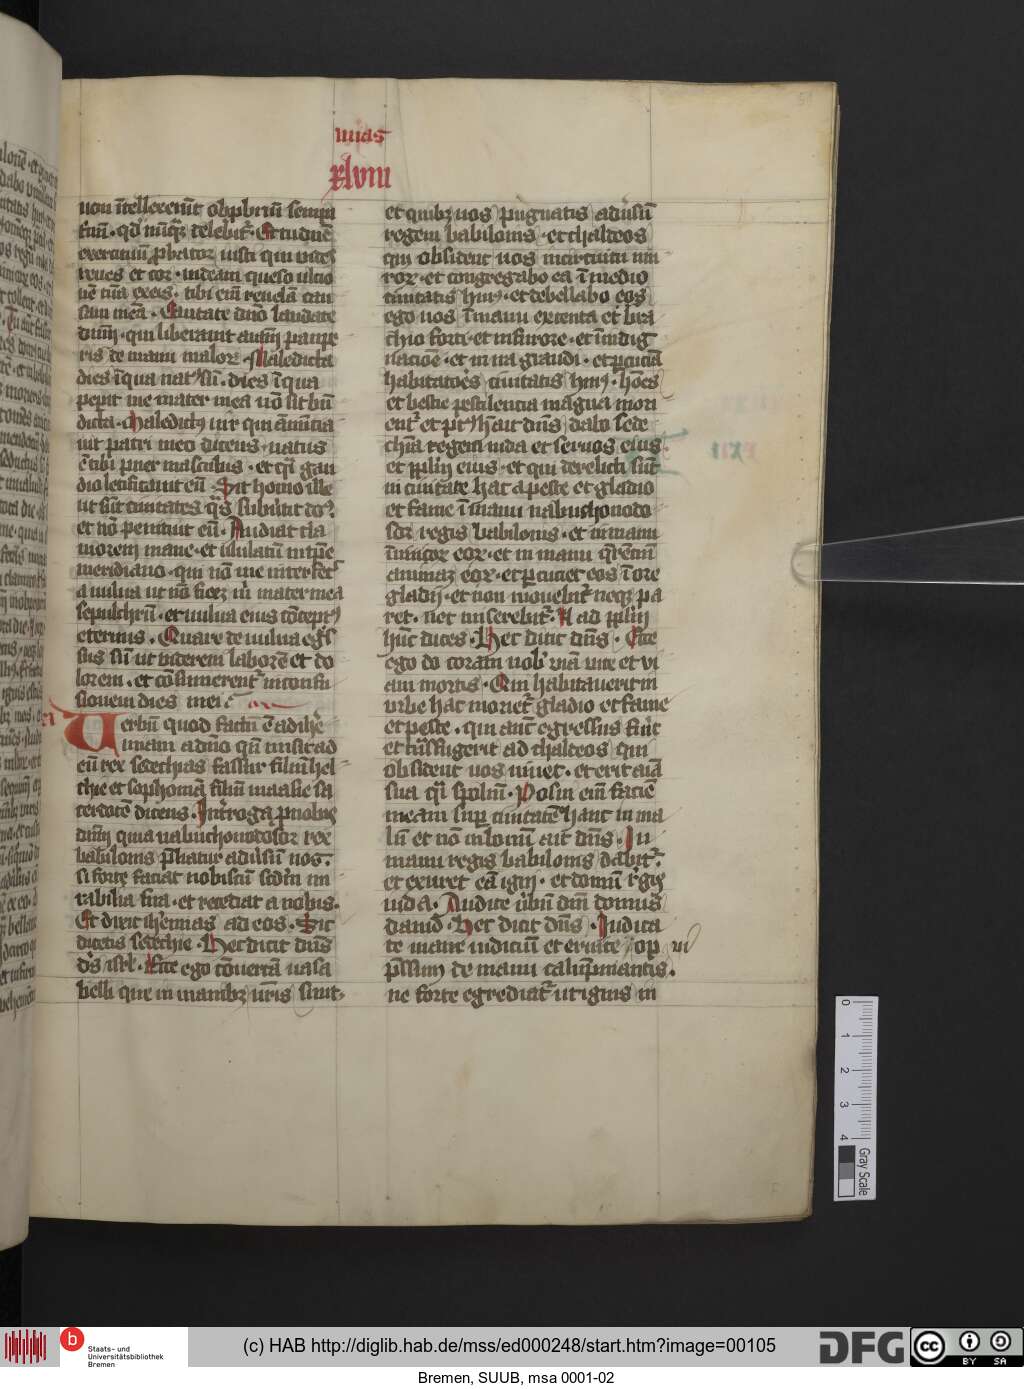 mias
xlviii
non ītellexerūt obprbriū sempit
ernū. qd nūqz delebit. Et tu dnē
exercituū probator iusti qui vides
renes et cor. videam queso ultio
nē tuā ex eis. tibi enī reuelaui cau
sam meā. Cantate dnō laudate
dnm. qui liberauit aīam paupe
ris de manu malorz. Maledicta
dies ī qua natus sū. dies ī qua
peperit me mater mea nō sit bn̄
dicta. Maledictus uir qui ānūtia
uit patri meo dicens. natus
ē tibi puer masculus. et qͥ gau
dio letificauit eū. Sit homo ille
ut sūt ciuitates qͣs subuertit dns.
et nō penituit eū. Audiat cla
morem mane. et ululatū in tp̄e
meridiano. qui nō me interfecit
a uulua ut nō fieret mͥ mater mea
sepulchrū. et uulua eius cōceptus
eternus. Quare de uulua egres
sus sū ut viderem laborē et do
lorem. et cōsumerent in confu
sionem dies mei
Uerbū quod factū ē ad ihe
miam a dno qn̄ misit ad
eū rex sedechias fassur filiū hel
chie et sophoniā filiū maasie sa
cerdotē dicens. Interroga pro nobis
dnm quia nabuchonodosor rex
babilonis preliatur aduersū nos.
si forte faciat nobiscū secundū mi
rabilia sua. et recedat a nobis.
Et dixit iheremias ad eos. Sic
dicetis sedechie. Hec dicit dns
ds isrl. Ecce ego cōuertā uasa
belli que in manibz uris sunt.
et quibz uos pugnatis aduersū
regem babilonis. et chaldeos
qui obsident uos in circuitu mu
rorz. et congregabo ea ī medio
ciuitatis huius. et debellabo eos
ego uos ī manu extenta et bra
chio forti. et in furore. et ī indig
nacione. et in ira grandi. et percuciā
habitatores ciuitatis huius. hoīes
et bestie pestilencia magna mori
entur. et post hec ait dns. dabo sede
chiā regem iuda et seruos eius
et pplm eius. et qui derelicti sūt
in ciuitate hac a peste et gladio
et fame ī manu nabuchonodo
sor regis babilonis. et in manu
inimicorz eorz. et in manu querencium
animaz eorz. et percuciet eos ī ore
gladij. et non mouebitur neqz pa
rcet. nec miserebitur. Et ad pplm
hūc dices. Hec dicit dns. Ecce
ego do coram uobis uiā uite et ui
am mortis. Qui habitauerit in
urbe hac morietur gladio et fame
et peste. qui autē egressus fuerit
et trāsfugerit ad chaldeos qui
obsident uos uiuet. et erit aīa
sua quasi spoliū. Posui enī faciē
meam super ciuitatē hanc in ma
lū et nō in bonū ait dns. In
manu regis babilonis dabitur.
et exuret eā igni. et domui regis
iuda. Audite uerbū dni domus
dauid. Hec dicit dns. Iudica
te mane iudiciū et eruite op vi
pressum de manu calumpniantis.
ne forte egrediatur ut ignis in
0
1
2
3
4
Gray Scale
b
Staats- und
Universitätsbibliothek
Bremen
(c) HAB http://diglib.hab.de/mss/ed000248/start.htm?image=00105
DFG
cc
BY
SA
Bremen, SUUB, msa 0001-02